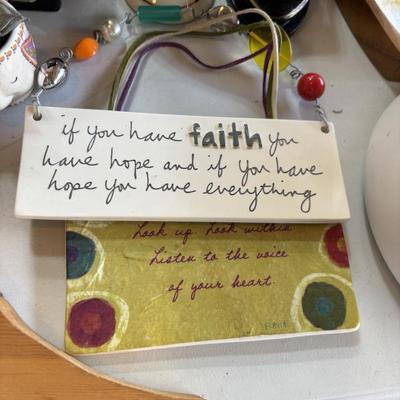 if you have faith you
have hope and if you have
hope you have everything
Look up Look within
Listen to the voice
of your heart.
FLAVIA